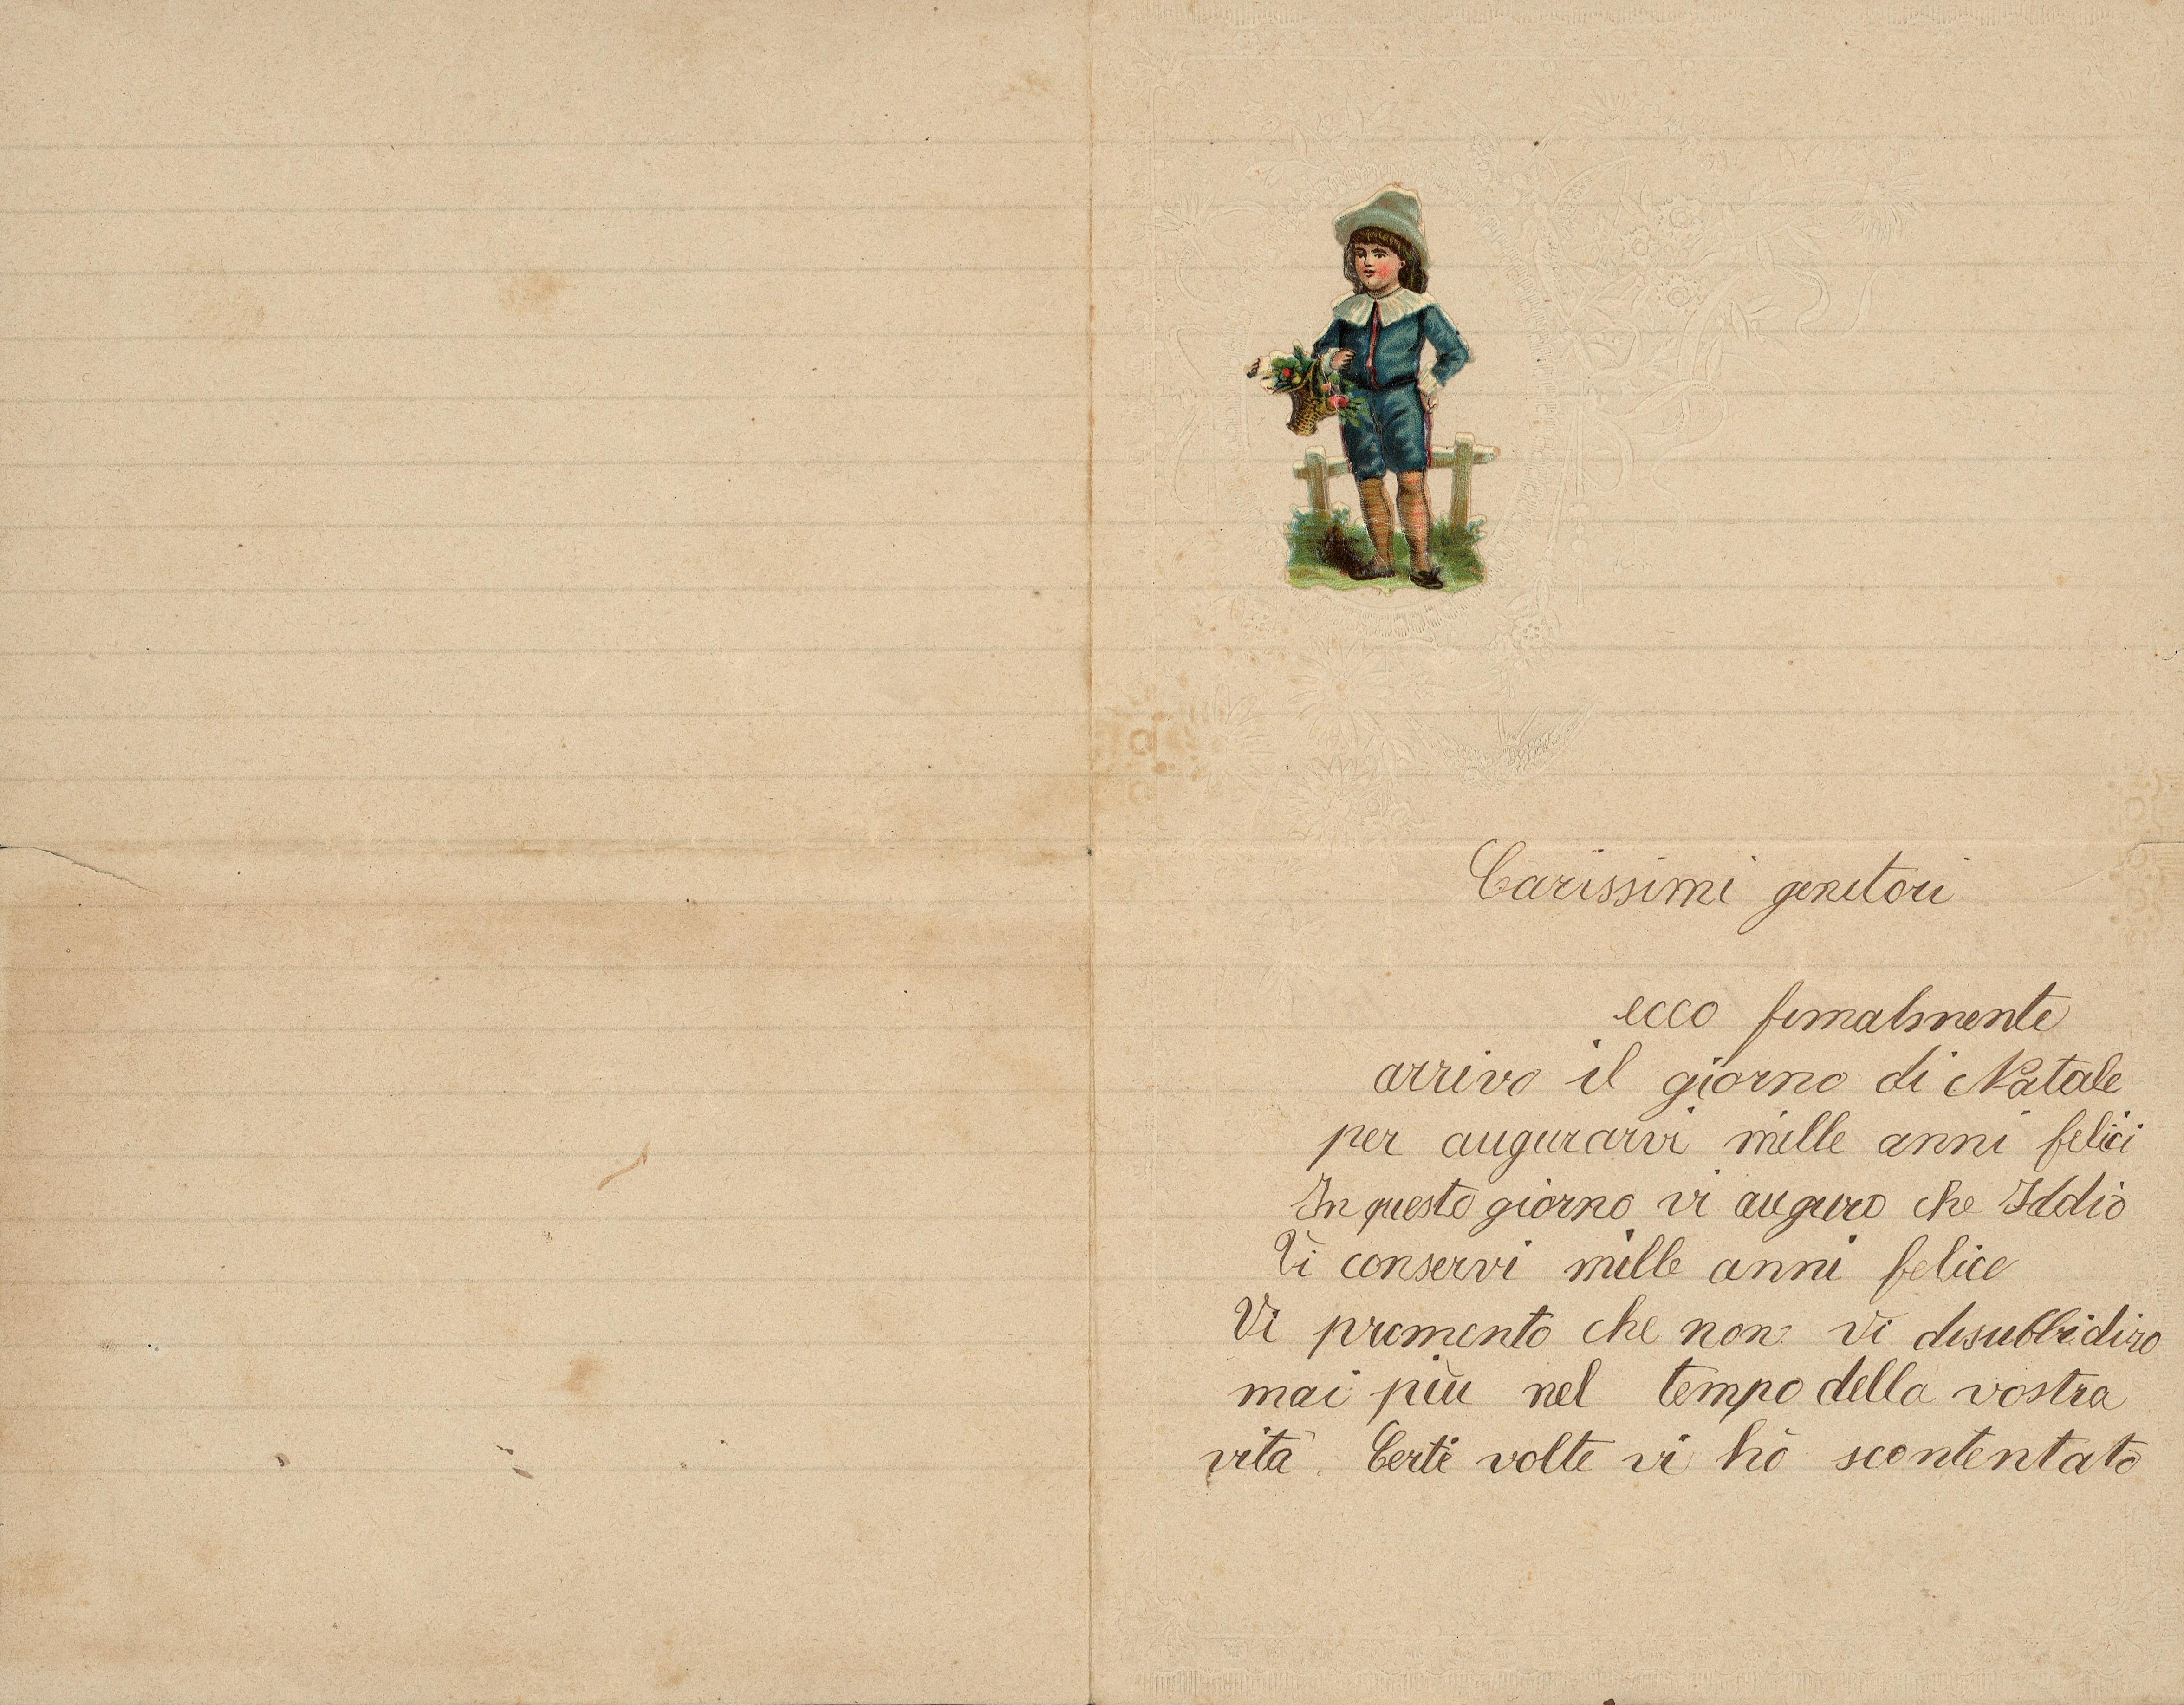 Carissimi genitori
ecco fimalmente
arrivo il giorno di Natale
per augurarvi mille anni felici
In questo giorno vi auguro che Iddio
Vi conservi mille anni felice
Vi promento che non vi disubbidiro
mai più nel tempo della vostra
vità. Certi volte vi hò scontentato